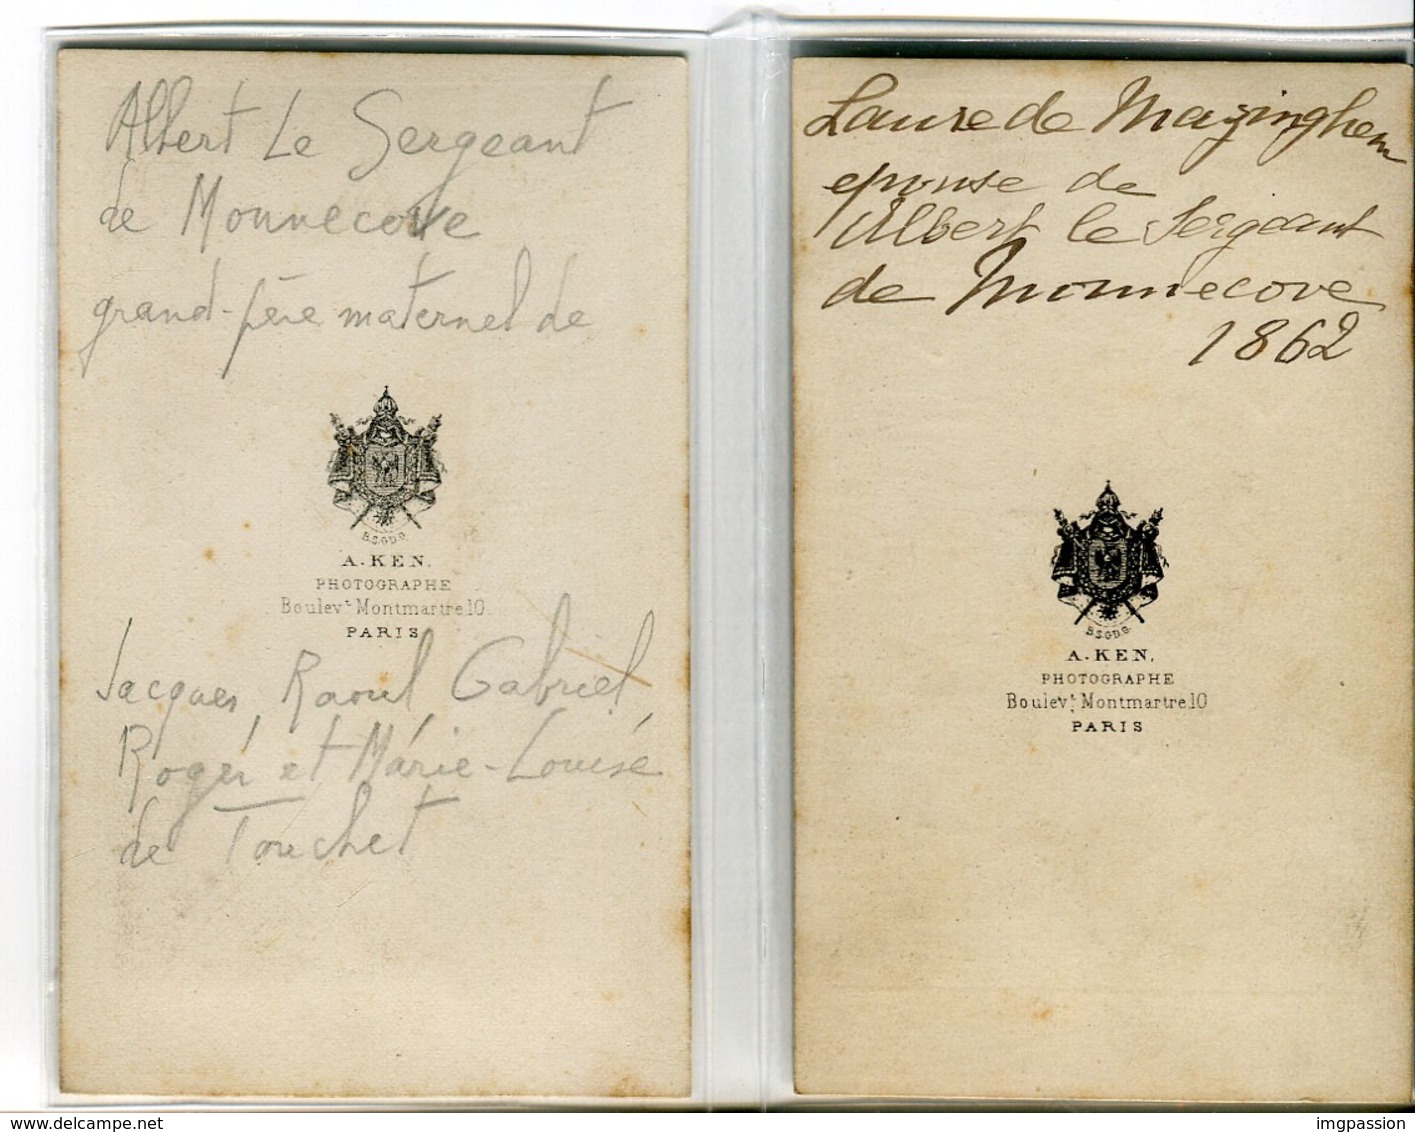 Albert Le Sergeant
de Monnecove
grand-père maternel de
B.S.G.D.G.
A. KEN.
PHOTOGRAPHE
Boulevt Montmartre 10
PARIS
Jacques, Raoul Gabriel
Roger et Marie-Louise
de Touchet
Laure de Mazinghem
epouse de
Albert le Sergeant
de Monnecove
1862
B.S.G.D.G.
A. KEN,
PHOTOGRAPHE
Boulevt Montmartre 10
PARIS
delcampe.net
imgpassion